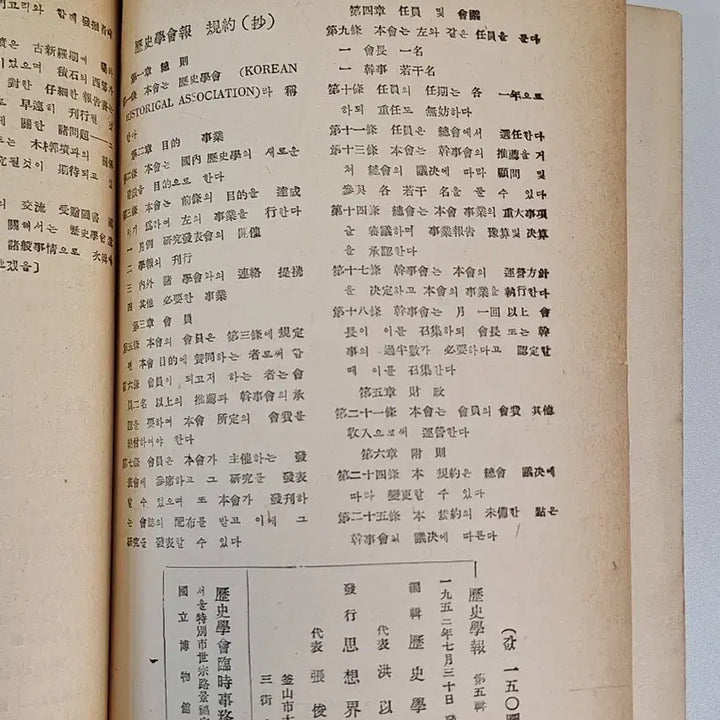 고리와 함께 發掘
은 古新羅期에
있으며 積石의 西
對한 仔細한 報告書
로 早速히 刊行된
에 關한 諸問題
는 木槨墳과의 關
究될것이 期待되고
의 交流 受贈圖書
關해서는 歷史學會
諸般事情으로 次
겠음]
歷史學會報 規約(抄)
第一章 總則
第一條 本會는 歷史學會 (KOREAN
HISTORICAL ASSOCIATION)라 稱
한다
第二章 目的 事業
第二條 本會는 國內 歷史學의 새로운
建設을 目的으로 한다
第三條 本會는 前條의 目的을 達成
하기 爲하여 左의 事業을 行한다
一 月例 硏究發表會의 開催
二 學報의 刊行
三 內外 諸 學會와의 連絡 提携
四 其他 必要한 事業
第三章 會員
第五條 本會의 會員은 第三條에 規定
된 本會 目的에 贊同하는 者로써 함
第六條 會員이 되고저 하는 者는 會
員二名 以上의 推薦과 幹事會의 承
認을 要하여 本會 所定의 會費를
納付하여야 한다
第七條 會員은 本會가 主催하는 發
表會에 參席하고 그 硏究를 發表
할 수 있으며 또 本會가 發刊하
는 會誌의 配布를 받고 이에 그
硏究를 發表할 수 있다
第四章 任員 및 會議
第九條 本會는 左와 같은 任員을 둔다
一 會長 一名
一 幹事 若干名
第十條 任員의 任期는 各 一年으로
하되 重任도 無妨하다
第十一條 任員은 總會에서 選任한다
第十三條 本會는 幹事會의 推薦을 거
쳐 總會의 議決에 따라 顧問 및
參與 各 若干 名을 둘 수 있다
第十四條 總會는 本會 事業의 重大事項
을 審議하며 事業報告 豫算및 決算
을 承認한다
第十七條 幹事會는 本會의 運營方針
을 決定하고 本會의 事業을 執行한다
第十八條 幹事會는 月 一回 以上 會
長이 이를 召集하되 會長 또는 幹
事의 過半數가 必要하다고 認定할
때 이를 召集한다
第五章 財政
第二十一條 本會는 會員의 會費 其他
收入으로써 運營한다
第六章 附則
第二十四條 本 規約은 總會 議決에
따라 變更할 수 있다
第二十五條 本 規約의 未備한 點은
幹事會의 議決에 따른다
(값 一五〇圓
歷史學報 第五輯
一九五二年七月三十日
編輯 歷史學
代表 洪以
發行 思想界
代表 張俊
釜山市
三街
歷史學會臨時事務
서울特別市世宗路景福宮
國立博物館